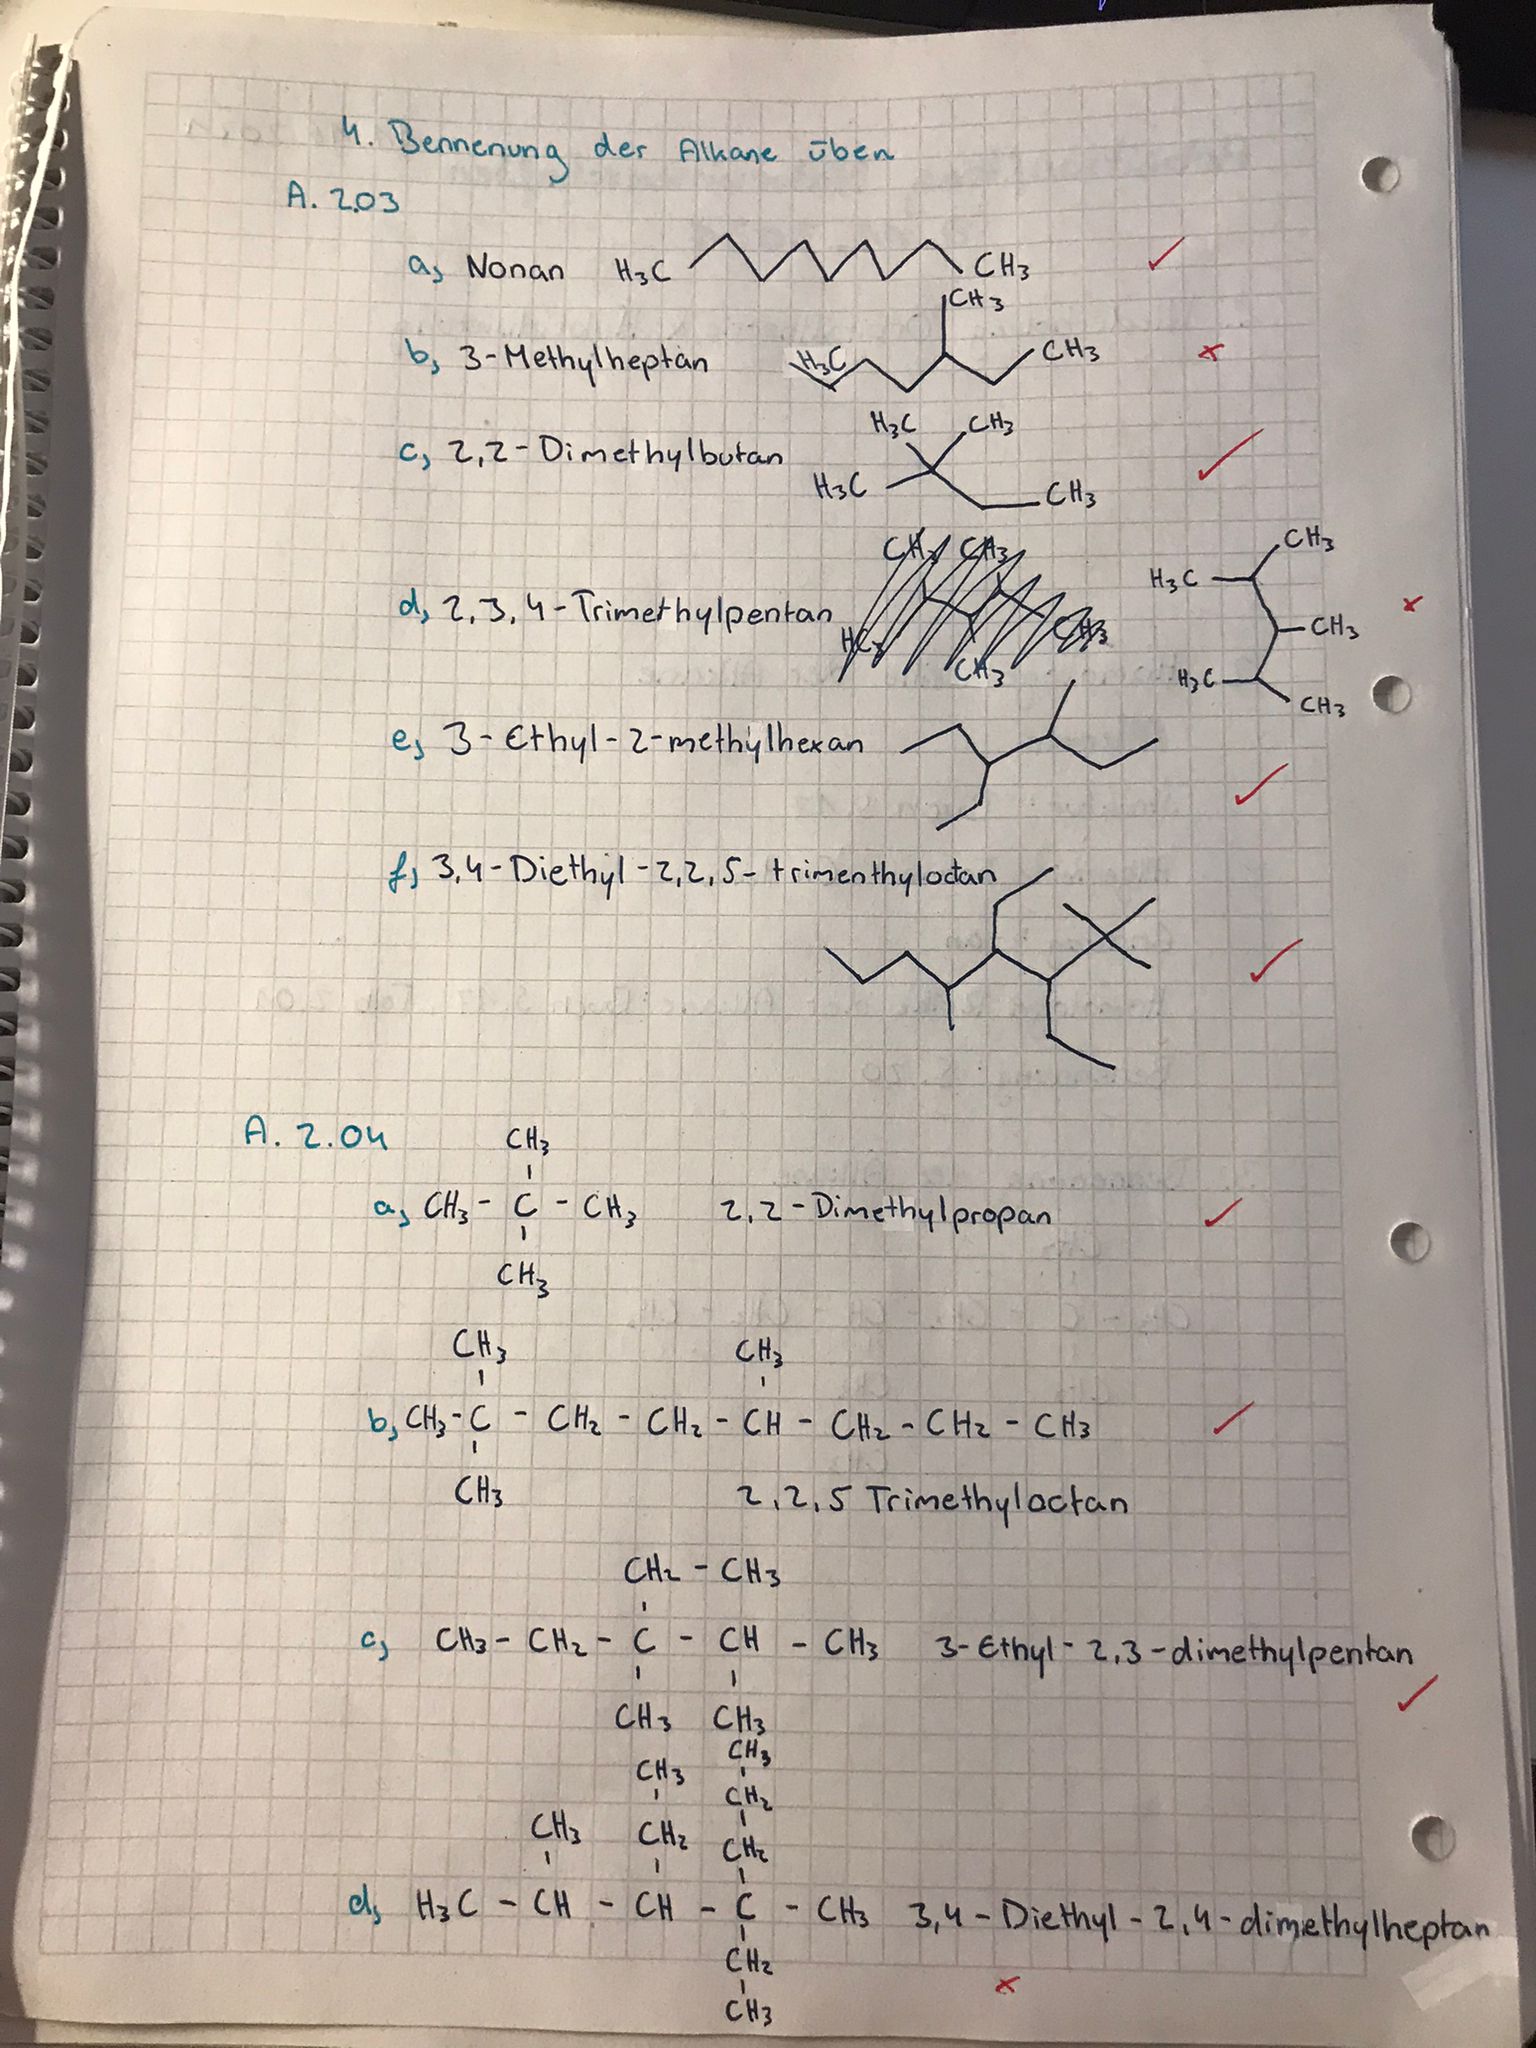 4. Bennenung der Alkane üben
A. 2.03
a, Nonan H₃C CH₃
CH₃
b, 3-Methylheptan H₃C CH₃
H₃C CH₃
c, 2,2-Dimethylbutan
H₃C CH₃
CH₃ CH₃ CH₃
H₃C
d, 2,3,4-Trimethylpentan CH₃
CH₃
CH₃
H₃C CH₃
e, 3-Ethyl-2-methylhexan
f, 3,4-Diethyl-2,2,5-trimenthyloctan
A. 2.04
CH₃
a, CH₃ - C - CH₃ 2,2-Dimethylpropan
CH₃
CH₃ CH₃
b, CH₃ - C - CH₂ - CH₂ - CH - CH₂ - CH₂ - CH₃
CH₃ 2,2,5 Trimethyloctan
CH₂ - CH₃
c, CH₃ - CH₂ - C - CH - CH₃ 3-Ethyl-2,3-dimethylpentan
CH₃ CH₃
CH₃
CH₃ CH₂
CH₃ CH₂ CH₂
d, H₃C - CH - CH - C - CH₃ 3,4-Diethyl-2,4-dimethylheptan
CH₂
CH₃